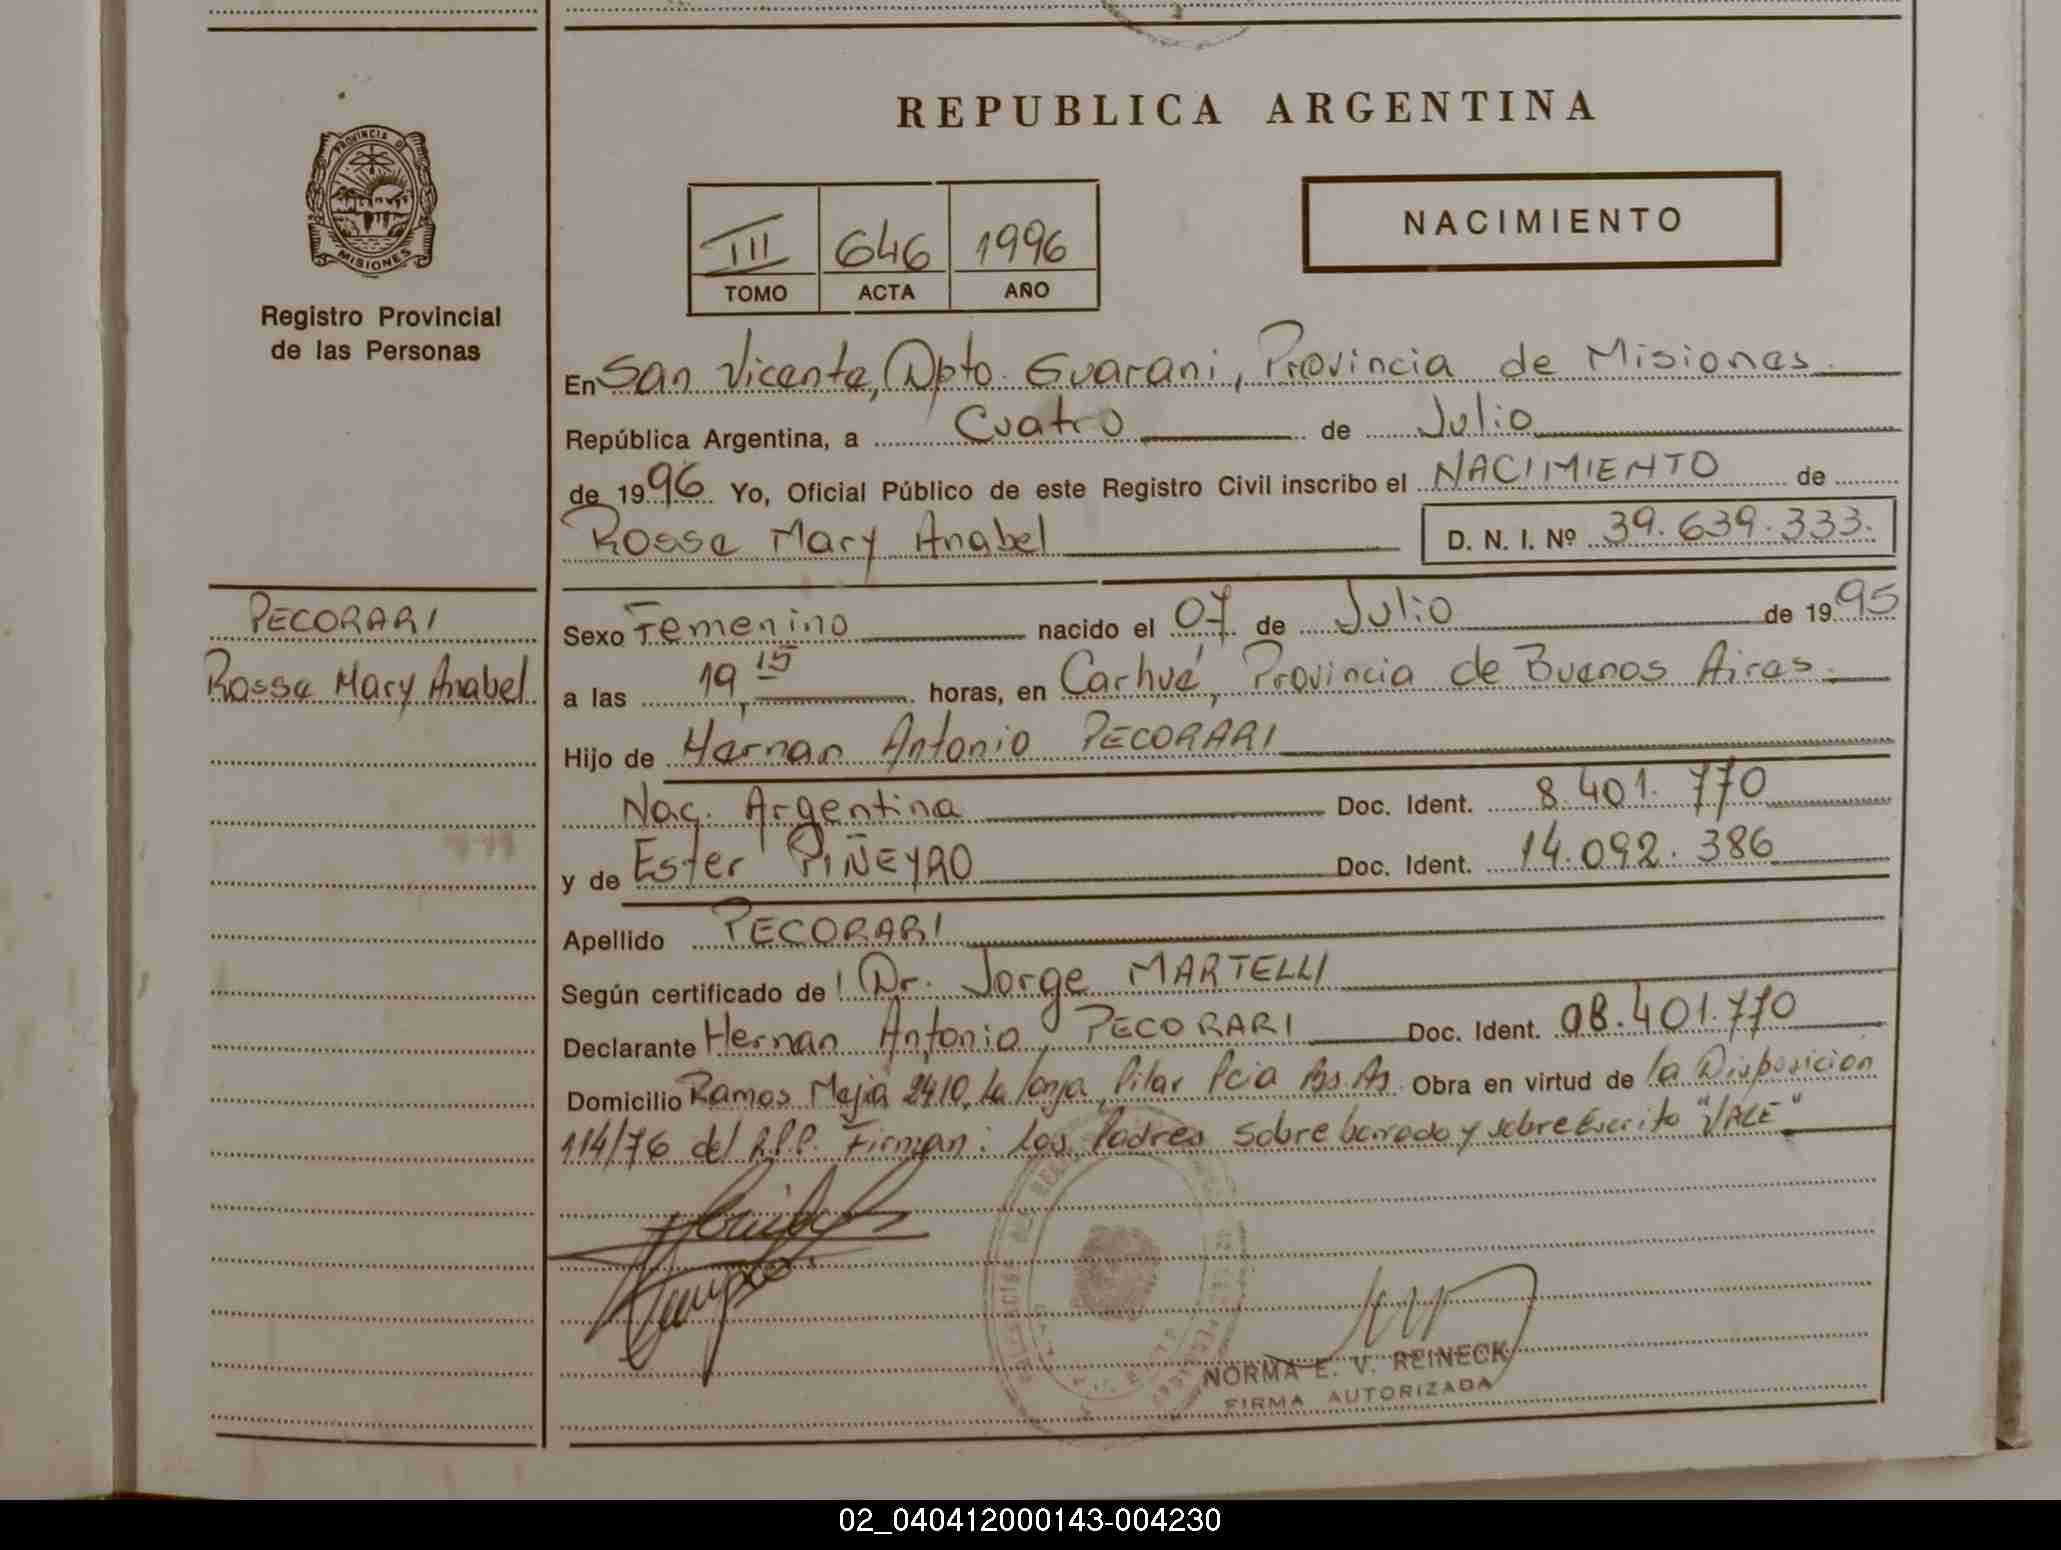 REPUBLICA ARGENTINA
PROVINCIA DE
MISIONES
Registro Provincial
de las Personas
III 646 1996
TOMO ACTA AÑO
NACIMIENTO
En San Vicente, Dpto. Guarani, Provincia de Misiones.
República Argentina, a Cuatro de Julio
de 1996 Yo, Oficial Público de este Registro Civil inscribo el NACIMIENTO de
Rosse Mary Anabel D. N. I. Nº 39.639.333.
PECORARI
Rosse Mary Anabel
Sexo Femenino nacido el 07 de Julio de 1995
a las 19,15 horas, en Carhué, Provincia de Buenos Aires.
Hijo de Hernan Antonio PECORARI
Nac. Argentina Doc. Ident. 8.401.770
y de Ester PIÑEYRO Doc. Ident. 14.092.386
Apellido PECORARI
Según certificado de Dr. Jorge MARTELLI
Declarante Hernan Antonio PECORARI Doc. Ident. 08.401.770
Domicilio Ramos Mejia 2410, La Lonja, Pilar Pcia Bs. As. Obra en virtud de la Disposición
114/76 del R.P.P. Firman: Los Padres sobre borrado y sobre Escrito "VALE"
NORMA E. V. REINECK
FIRMA AUTORIZADA
02_040412000143-004230